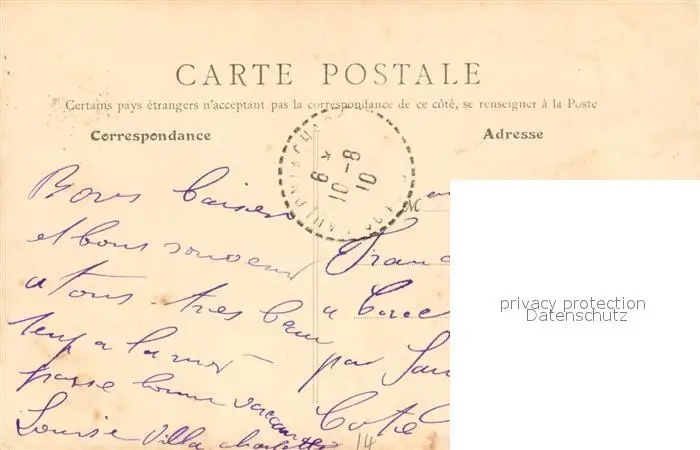 CARTE POSTALE
Certains pays étrangers n'acceptant pas la correspondance de ce côté, se renseigner à la Poste
Correspondance
Adresse
9 10-8 10
Bons baisers
et bons souvenirs
a tous. très beau
temp a la mer —
passe bonne vacances
Louise Villa Charlotte
M
Franc
a
par San
Cote
14
privacy protection
Datenschutz